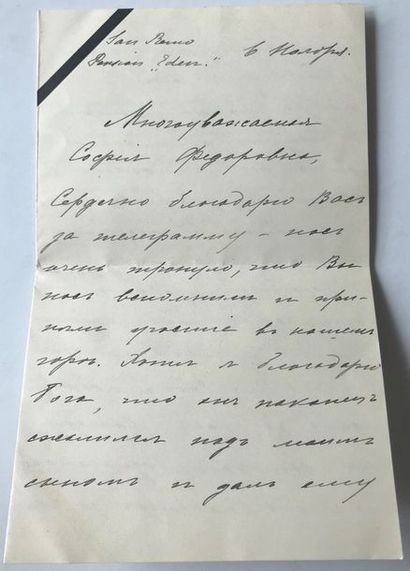 San Remo
Pension „Eden." 6 Ноября.
Многоуважаемая
Софія Федоровна,
Сердечно благодарю Васъ
за телеграмму – насъ
очень тронуло, что Вы
насъ вспомнили и при-
няли участіе въ нашемъ
горѣ. Хотя я благодарю
Бога, что онъ наконецъ
сжалился надъ моимъ
сыномъ и далъ ему